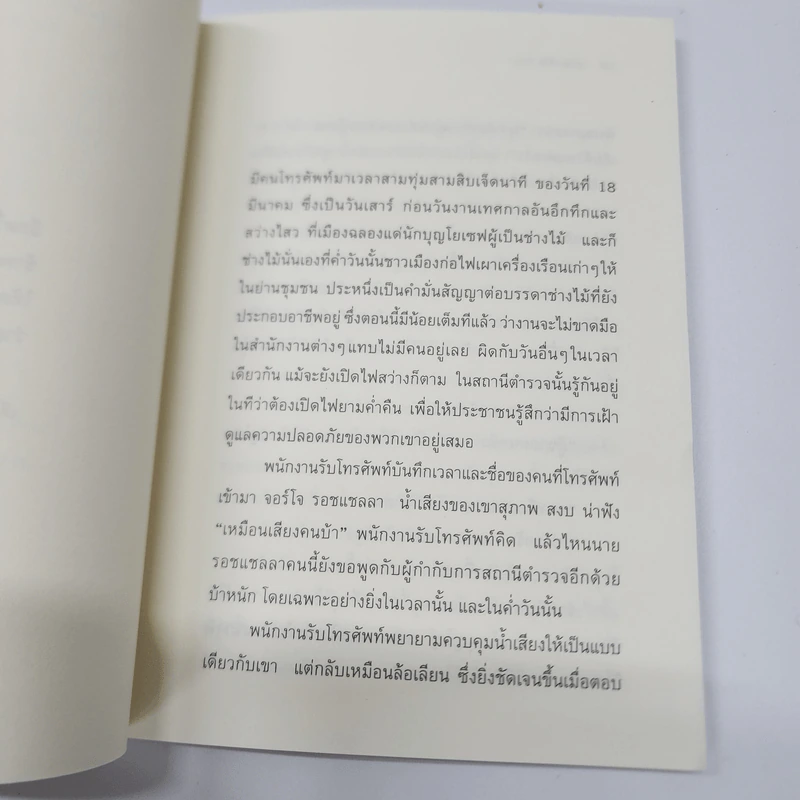 มีคนโทรศัพท์มาเวลาสามทุ่มสามสิบเจ็ดนาที ของวันที่ 18
มีนาคม ซึ่งเป็นวันเสาร์ ก่อนวันงานเทศกาลอันอึกทึกและ
สว่างไสว ที่เมืองฉลองแด่นักบุญโยเซฟผู้เป็นช่างไม้ และก็
ช่างไม้นั่นเองที่ค่ำวันนั้นชาวเมืองก่อไฟเผาเครื่องเรือนเก่าๆให้
ในย่านชุมชน ประหนึ่งเป็นคำมั่นสัญญาต่อบรรดาช่างไม้ที่ยัง
ประกอบอาชีพอยู่ ซึ่งตอนนี้มีน้อยเต็มทีแล้ว ว่างานจะไม่ขาดมือ
ในสำนักงานต่างๆแทบไม่มีคนอยู่เลย ผิดกับวันอื่นๆในเวลา
เดียวกัน แม้จะยังเปิดไฟสว่างก็ตาม ในสถานีตำรวจนั้นรู้กันอยู่
ในทีว่าต้องเปิดไฟยามค่ำคืน เพื่อให้ประชาชนรู้สึกว่ามีการเฝ้า
ดูแลความปลอดภัยของพวกเขาอยู่เสมอ
พนักงานรับโทรศัพท์บันทึกเวลาและชื่อของคนที่โทรศัพท์
เข้ามา จอร์โจ รอชแชลลา น้ำเสียงของเขาสุภาพ สงบ น่าฟัง
“เหมือนเสียงคนบ้า” พนักงานรับโทรศัพท์คิด แล้วไหนนาย
รอชแชลลาคนนี้ยังขอพูดกับผู้กำกับการสถานีตำรวจอีกด้วย
บ้าหนัก โดยเฉพาะอย่างยิ่งในเวลานั้น และในค่ำวันนั้น
พนักงานรับโทรศัพท์พยายามควบคุมน้ำเสียงให้เป็นแบบ
เดียวกับเขา แต่กลับเหมือนล้อเลียน ซึ่งยิ่งชัดเจนขึ้นเมื่อตอบ